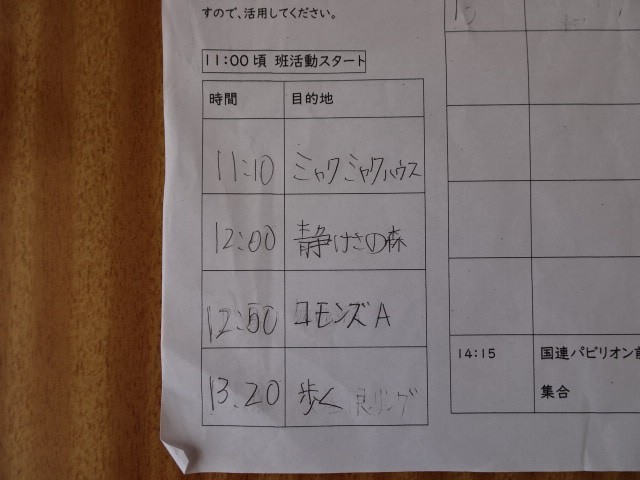 すので、活用してください。
11:00頃 班活動スタート
時間 目的地
11:10 ミャクミャクハウス
12:00 静けさの森
12:50 コモンズA
13.20 歩く リング
14:15 国連パビリオン前
集合